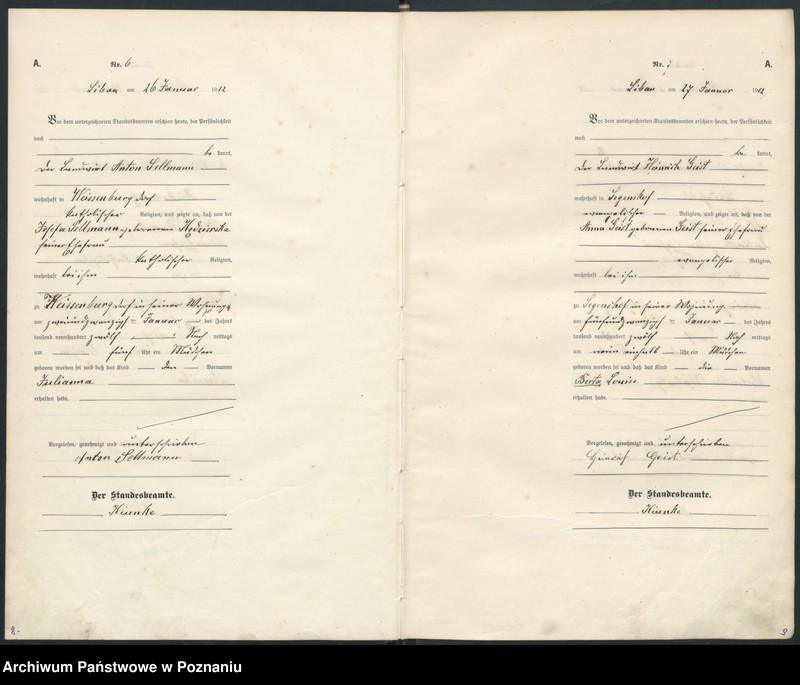 A.
Nr. 6
Libau am 26 Januar 1912
Vor dem unterzeichneten Standesbeamten erschien heute, der Persönlichkeit
nach
be kannt,
der Landwirt Anton Sellmann
wohnhaft in Weissenburg dorf
katholischer Religion, und zeigte an, daß von der
Josefa Sellmann geborenen
seiner Ehefrau
katholischer Religion,
wohnhaft bei ihm
zu Weissenburg dorf in seiner Wohnung
am zweiundzwanzigsten Januar des Jahres
tausend neunhundert zwölf Nach mittags
um fünf Uhr ein Mädchen
geboren worden sei und daß das Kind den Vornamen
Julianna
erhalten habe.
Vorgelesen, genehmigt und unterschrieben
Anton Sellmann
Der Standesbeamte.
Kuenke
8.
Nr. 7
A.
Libau am 27 Januar 1912
Vor dem unterzeichneten Standesbeamten erschien heute, der Persönlichkeit
nach
be kannt,
der Landwirt Heinrich Geist
wohnhaft in Segenshof
evangelischer Religion, und zeigte an, daß von der
Anna Geist geborenen Geist seiner Ehefrau
evangelischer Religion,
wohnhaft bei ihm
zu Segenshof in seiner Wohnung
am fünfundzwanzigsten Januar des Jahres
tausend neunhundert zwölf Nach mittags
um neun einhalb Uhr ein Mädchen
geboren worden sei und daß das Kind die Vornamen
Berta Louise
erhalten habe.
Vorgelesen, genehmigt und unterschrieben
Heinrich Geist
Der Standesbeamte.
Kuenke
9
Archiwum Państwowe w Poznaniu